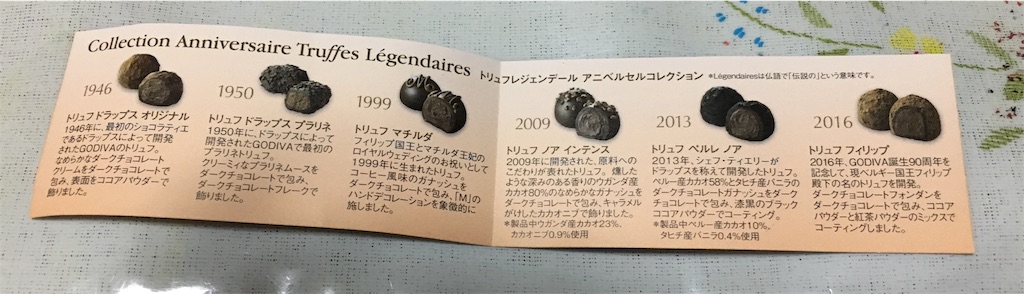 Collection Anniversaire Truffes Légendaires トリュフレジェンデール アニベルセルコレクション *Légendairesは仏語で「伝説の」という意味です。
1946
トリュフ ドラップス オリジナル
1946年に、最初のショコラティエ
であるドラップスによって開発
されたGODIVAのトリュフ。
なめらかなダークチョコレート
クリームをダークチョコレートで
包み、表面をココアパウダーで
飾りました。
1950
トリュフ ドラップス プラリネ
1950年に、ドラップスによって
開発されたGODIVAで最初の
プラリネトリュフ。
クリーミィなプラリネムースを
ダークチョコレートで包み、
ダークチョコレートフレークで
飾りました。
1999
トリュフ マチルダ
フィリップ国王とマチルダ王妃の
ロイヤルウェディングのお祝いとして
1999年に生まれたトリュフ。
コーヒー風味のガナッシュを
ダークチョコレートで包み、「M」の
ハンドデコレーションを象徴的に
施しました。
2009
トリュフ ノア インテンス
2009年に開発された、原料への
こだわりが表れたトリュフ。燻した
ような深みのある香りのウガンダ産
カカオ80%のなめらかなガナッシュを
ダークチョコレートで包み、キャラメル
がけしたカカオニブで飾りました。
*製品中ウガンダ産カカオ23%、
カカオニブ0.9%使用
2013
トリュフ ペルレ ノア
2013年、シェフ・ティエリーが
ドラップスを称えて開発したトリュフ。
ペルー産カカオ58%とタヒチ産バニラの
ダークチョコレートガナッシュをダーク
チョコレートで包み、漆黒のブラック
ココアパウダーでコーティング。
*製品中ペルー産カカオ10%、
タヒチ産バニラ0.4%使用
2016
トリュフ フィリップ
2016年、GODIVA誕生90周年を
記念して、現ベルギー国王フィリップ
殿下の名のトリュフを開発。
ダークチョコレートフォンダンを
ダークチョコレートで包み、ココア
パウダーと紅茶パウダーのミックスで
コーティングしました。